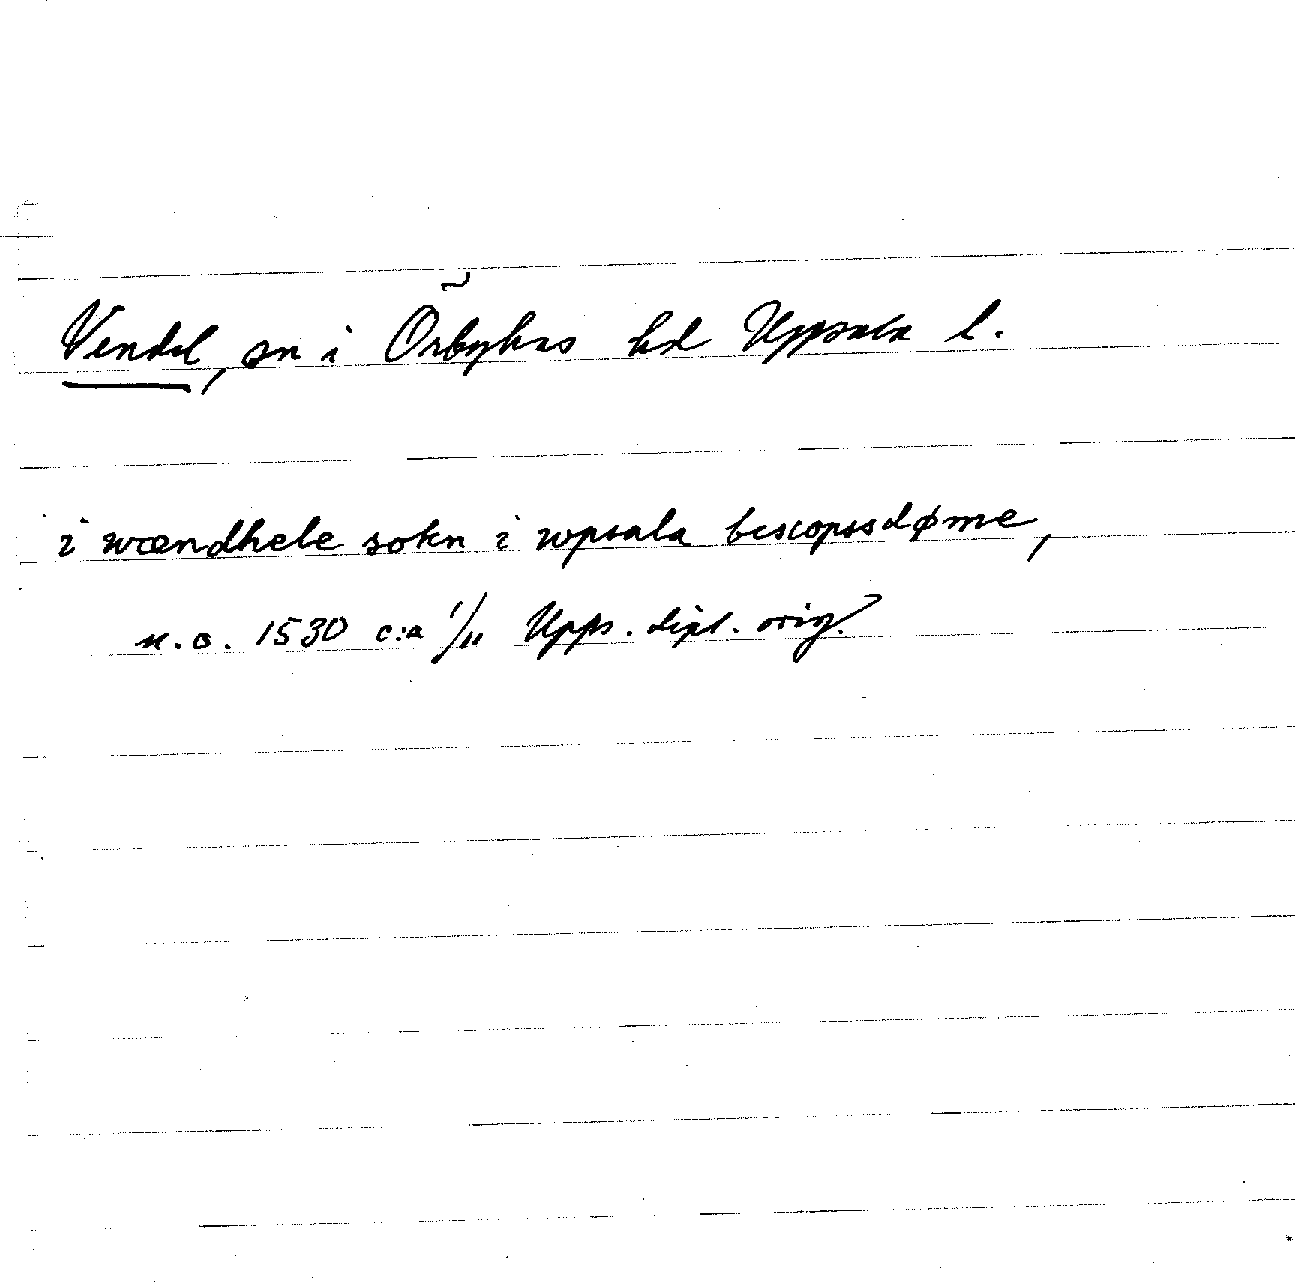 Vendel, sn i Örbyhus hd Uppsala l.
i wændhele sokn i wpsala bescopssdøme,
u.o. 1530 c:a 1/11 Upps. dipl. orig.